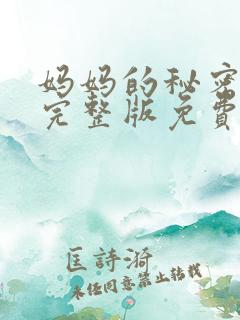 妈妈的秘密
完整版免费
匡詩漪
未經同意禁止转载